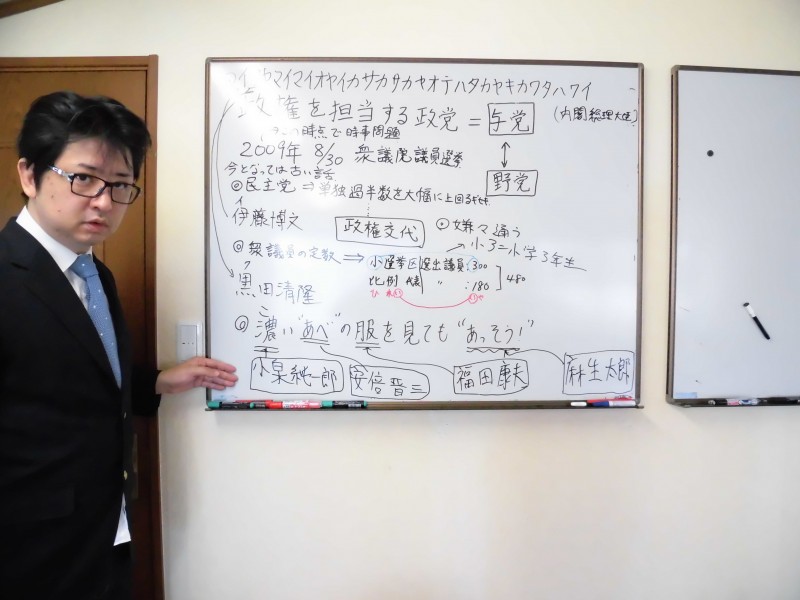 イクヤマイマイオヤイカサカサカヤオテハタカヤキカワタハワイ
政権を担当する政党 = 与党 (内閣総理大臣)
の時点で時事問題
2009年 8/30 衆議院議員選挙
野党
今となっては古い話
◎民主党 ⇒ 単独過半数を大幅に上回る
伊藤博文
政権交代
⊙嫌々通う
小3=小学3年生
◎衆議員の定数 ⇒ 小選挙区選出議員:300
比例代表 〃 :180
480
黒田清隆
◎濃い"あべ"の服を見ても"あっそう!"
小泉純一郎 安倍晋三 福田康夫 麻生太郎